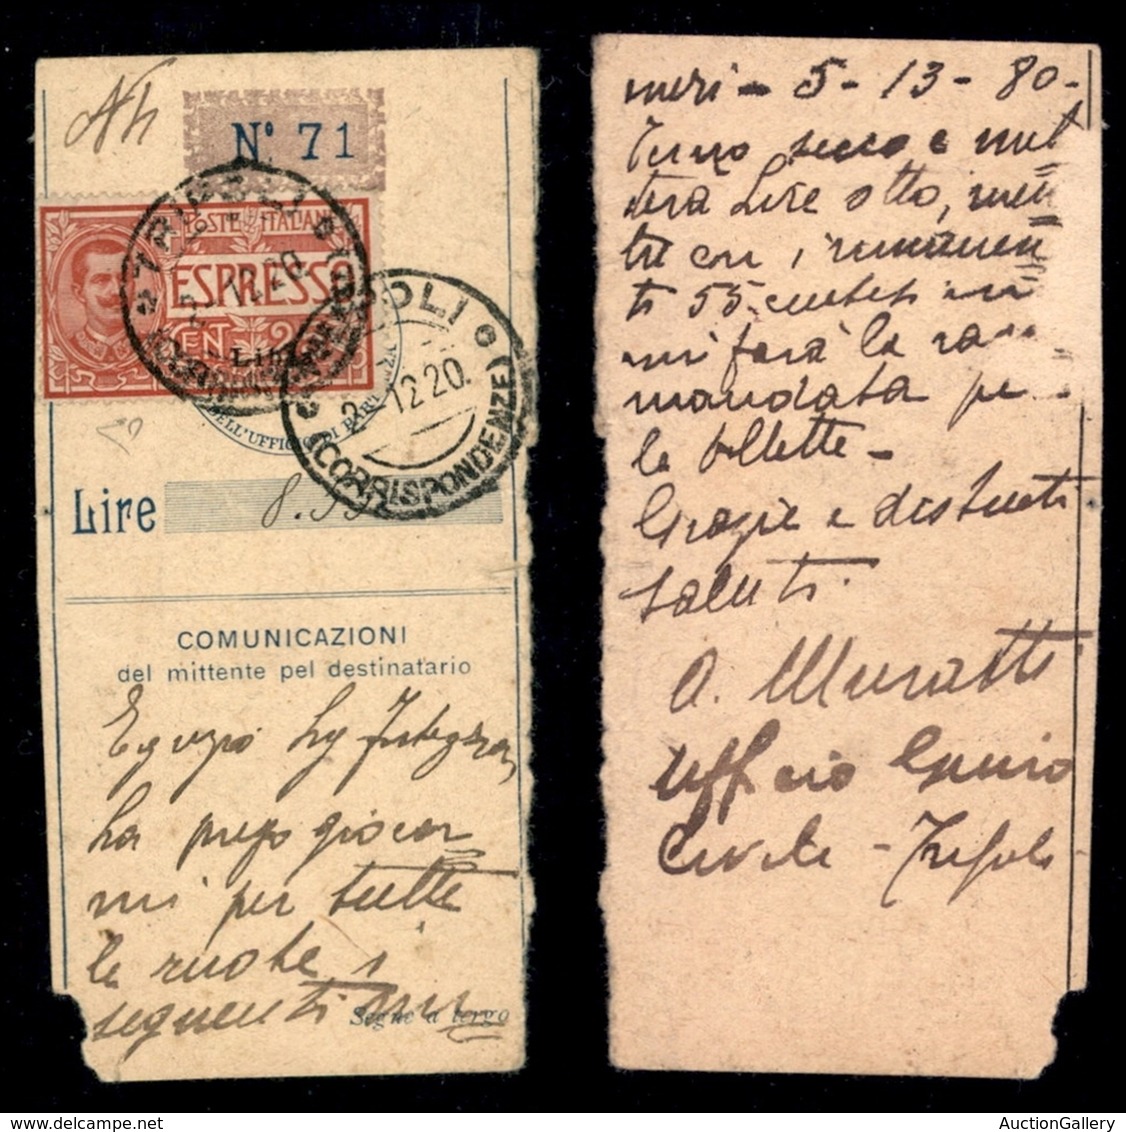 Nº 71
POSTE ITALIANE
ESPRESSO
CENT. 25
Libia
TRIPOLI
12.20
TRIPOLI
2-12.20.
(CORRISPONDENZE)
DELL'UFFICIO DI PARTENZA
Lire 8.55
COMUNICAZIONI
del mittente pel destinatario
Egregio Sig
La prego giocar
mi per tutte
le ruote i
seguenti nu
Segue a tergo
meri - 5 - 13 - 80 -
Terno secco e met
terà Lire otto, men
tre con i rimanen
ti 55 centesimi
mi farà la rac
mandata pe
le bollette -
Grazie e distinti
saluti.
A. Muratti
Ufficio Genio
Civile - Tripoli
AuctionGallery